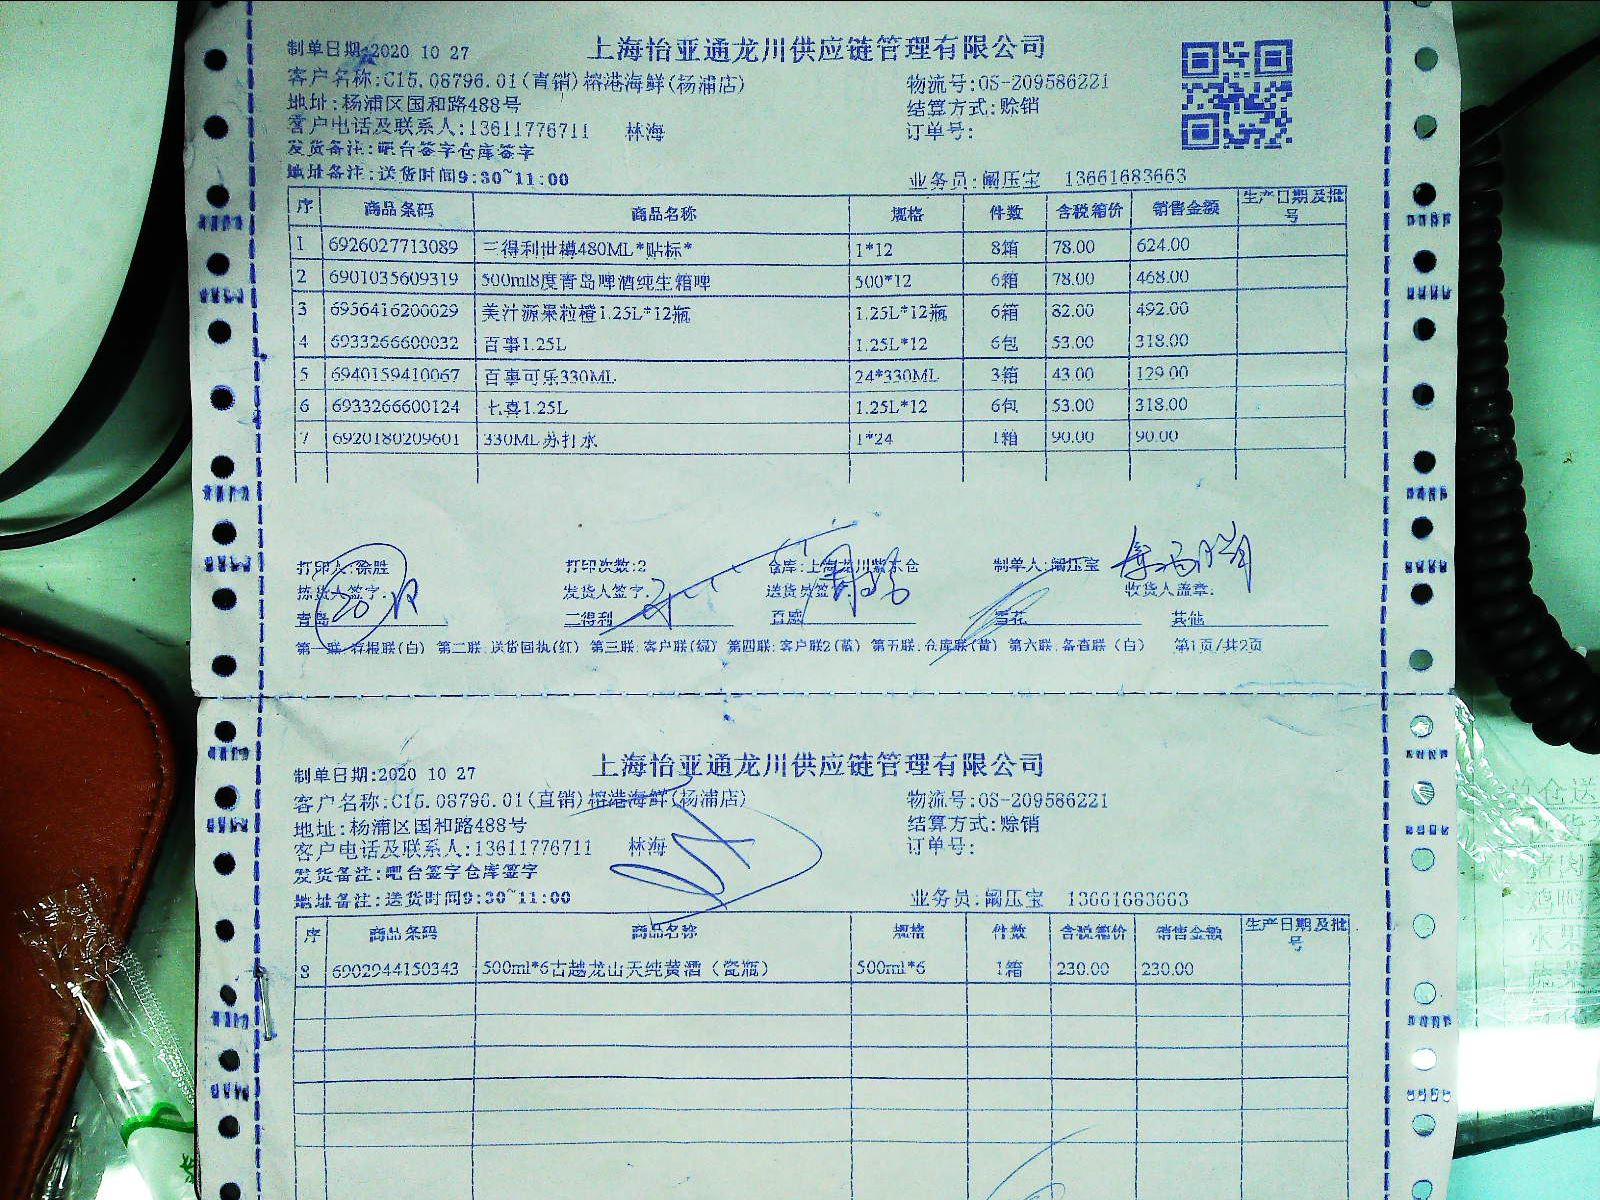 上海怡亚通龙川供应链管理有限公司
制单日期:2020 10 27
客户名称:C15.08796.01(直销)榕港海鲜(杨浦店) 物流号:OS-209586221
地址:杨浦区国和路488号 结算方式:赊销
客户电话及联系人:13611776711 林海 订单号:
发货备注:吧台签字仓库签字
地址备注:送货时间9:30~11:00 业务员:阚压宝 13661683663
序 商品条码 商品名称 规格 件数 含税箱价 销售金额 生产日期及批号
1 6926027713089 三得利世樽480ML*贴标* 1*12 8箱 78.00 624.00
2 6901035609319 500ml8度青岛啤酒纯生箱啤 500*12 6箱 78.00 468.00
3 6956416200029 美汁源果粒橙1.25L*12瓶 1.25L*12瓶 6箱 82.00 492.00
4 6933266600032 百事1.25L 1.25L*12 6包 53.00 318.00
5 6940159410067 百事可乐330ML 24*330ML 3箱 43.00 129.00
6 6933266600124 七喜1.25L 1.25L*12 6包 53.00 318.00
7 6920180209601 330ML苏打水 1*24 1箱 90.00 90.00
打印人:徐胜 打印次数:2 仓库:上海龙川紫东仓 制单人:阚压宝
拣货人签字: 发货人签字: 送货员签 收货人盖章:
青岛 三得利 百威 雪花 其他
第一联:存根联(白) 第二联:送货回执(红) 第三联:客户联(绿) 第四联:客户联2(蓝) 第五联:仓库联(黄) 第六联:备查联(白) 第1页/共2页
上海怡亚通龙川供应链管理有限公司
制单日期:2020 10 27
客户名称:C15.08796.01(直销)榕港海鲜(杨浦店) 物流号:OS-209586221
地址:杨浦区国和路488号 结算方式:赊销
客户电话及联系人:13611776711 林海 订单号:
发货备注:吧台签字仓库签字
地址备注:送货时间9:30~11:00 业务员:阚压宝 13661683663
序 商品条码 商品名称 规格 件数 含税箱价 销售金额 生产日期及批号
8 6902944150343 500ml*6古越龙山天纯黄酒（瓷瓶） 500ml*6 1箱 230.00 230.00